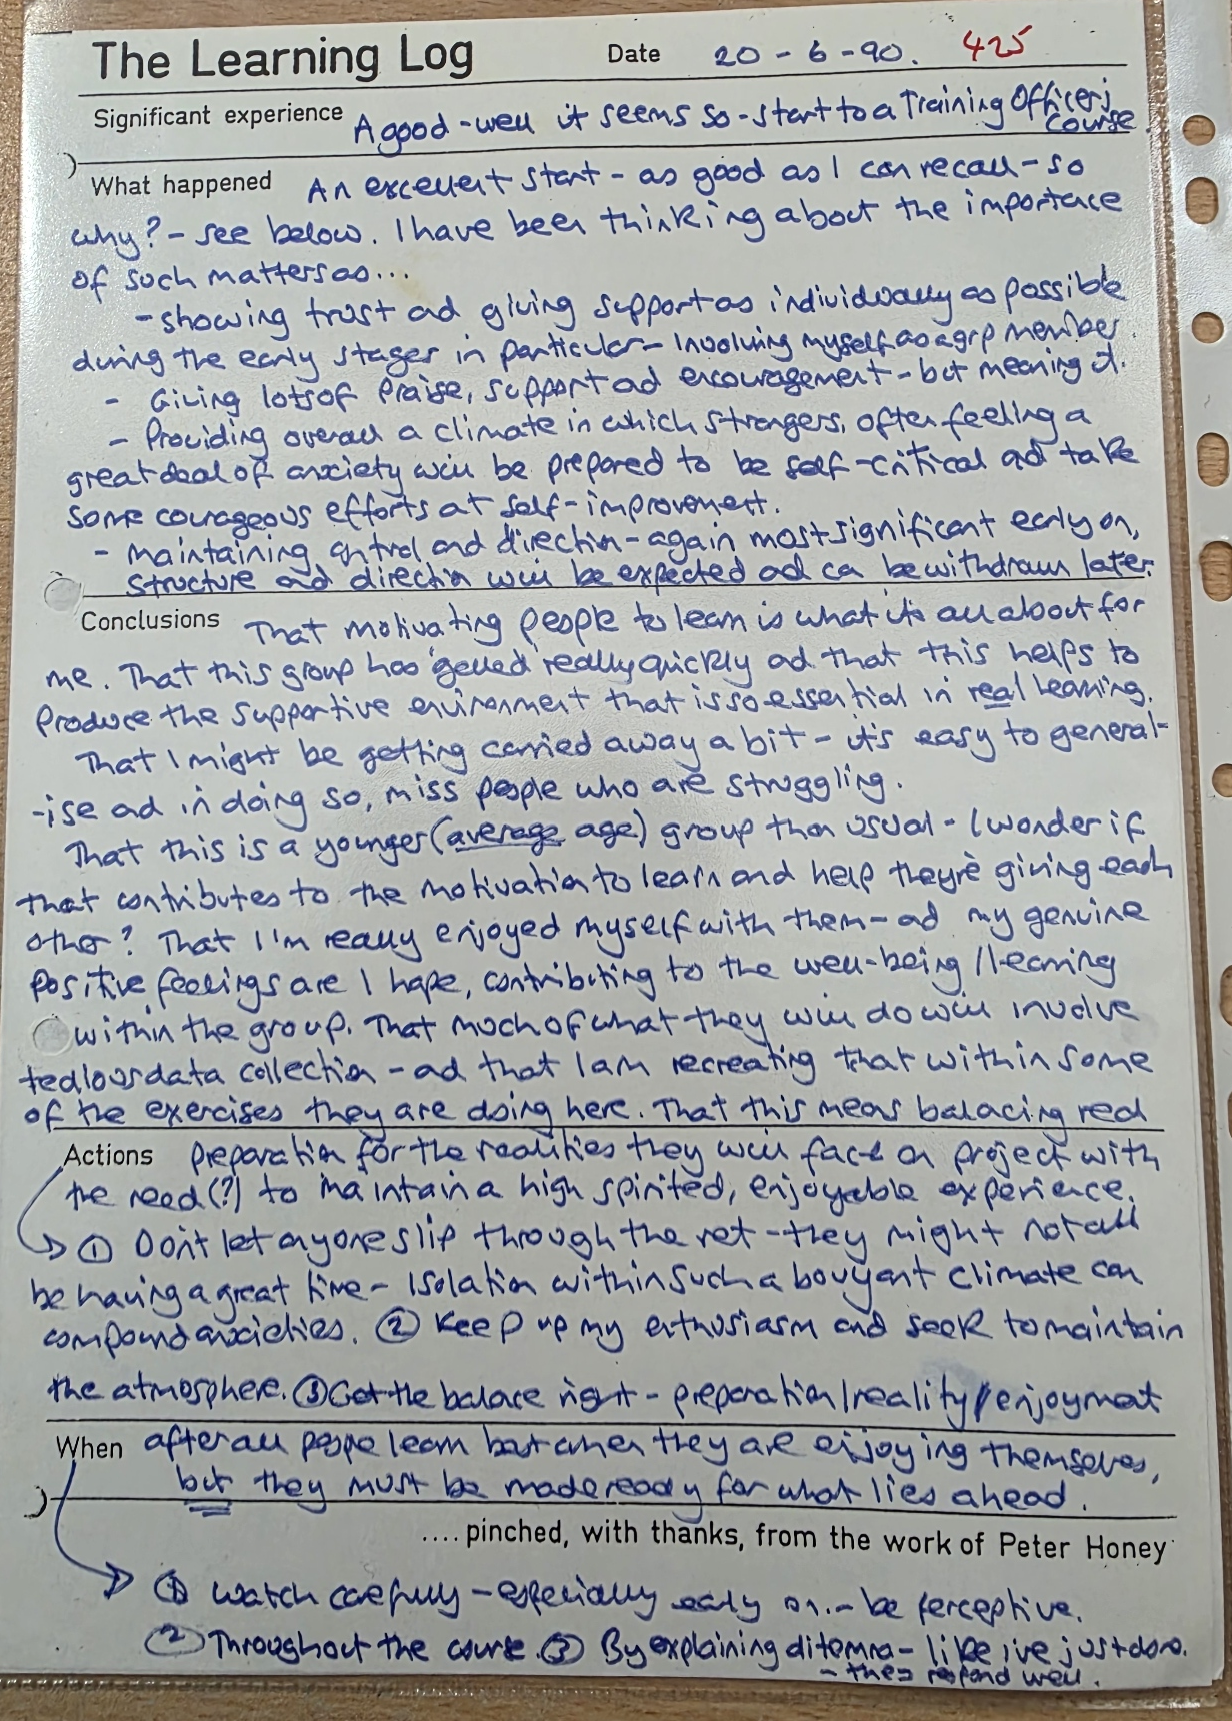 The Learning Log Date 20 - 6 - 90. 425
Significant experience A good - well it seems so - start to a Training Officers
Course.
What happened An excellent start - as good as I can recall - so
why? - see below. I have been thinking about the importance
of such matters as...
- showing trust ad giving support as individually as possible
during the early stages in particular - Involving myself as a grp member.
- Giving lots of Praise, support ad encouragement - but meaning it.
- Providing overall a climate in which strangers, often feeling a
great deal of anxiety will be prepared to be self-critical ad take
some courageous efforts at self-improvement.
- maintaining control and direction - again most significant early on,
structure and direction will be expected ad ca be withdrawn later.
Conclusions That motivating people to learn is what it's all about for
me. That this group has 'gelled' really quickly ad that this helps to
produce the supportive environment that is so essential in real learning.
That I might be getting carried away a bit - it's easy to general-
-ise ad in doing so, miss people who are struggling.
That this is a younger (average age) group than usual - I wonder if
that contributes to the motivation to learn and help they're giving each
other? That I'm really enjoyed myself with them - ad my genuine
positive feelings are I hope, contributing to the well-being / learning
within the group. That much of what they will do will involve
tedious data collection - ad that I am recreating that within some
of the exercises they are doing here. That this means balacing real
Actions preparation for the realities they will face on project with
the need (?) to maintain a high spirited, enjoyable experience.
① Don't let anyone slip through the net - they might not all
be having a great time - Isolation within such a bouyant climate can
compound anxieties. ② Keep up my enthusiasm and seek to maintain
the atmosphere. ③ Get the balace right - preparation / reality / enjoyment
When after all people learn best when they are enjoying themselves,
but they must be made ready for what lies ahead.
.... pinched, with thanks, from the work of Peter Honey
① Watch carefully - especially early on. - be perceptive.
② Throughout the course. ③ By explaining dilemma - like ive just done.
- they respond well.